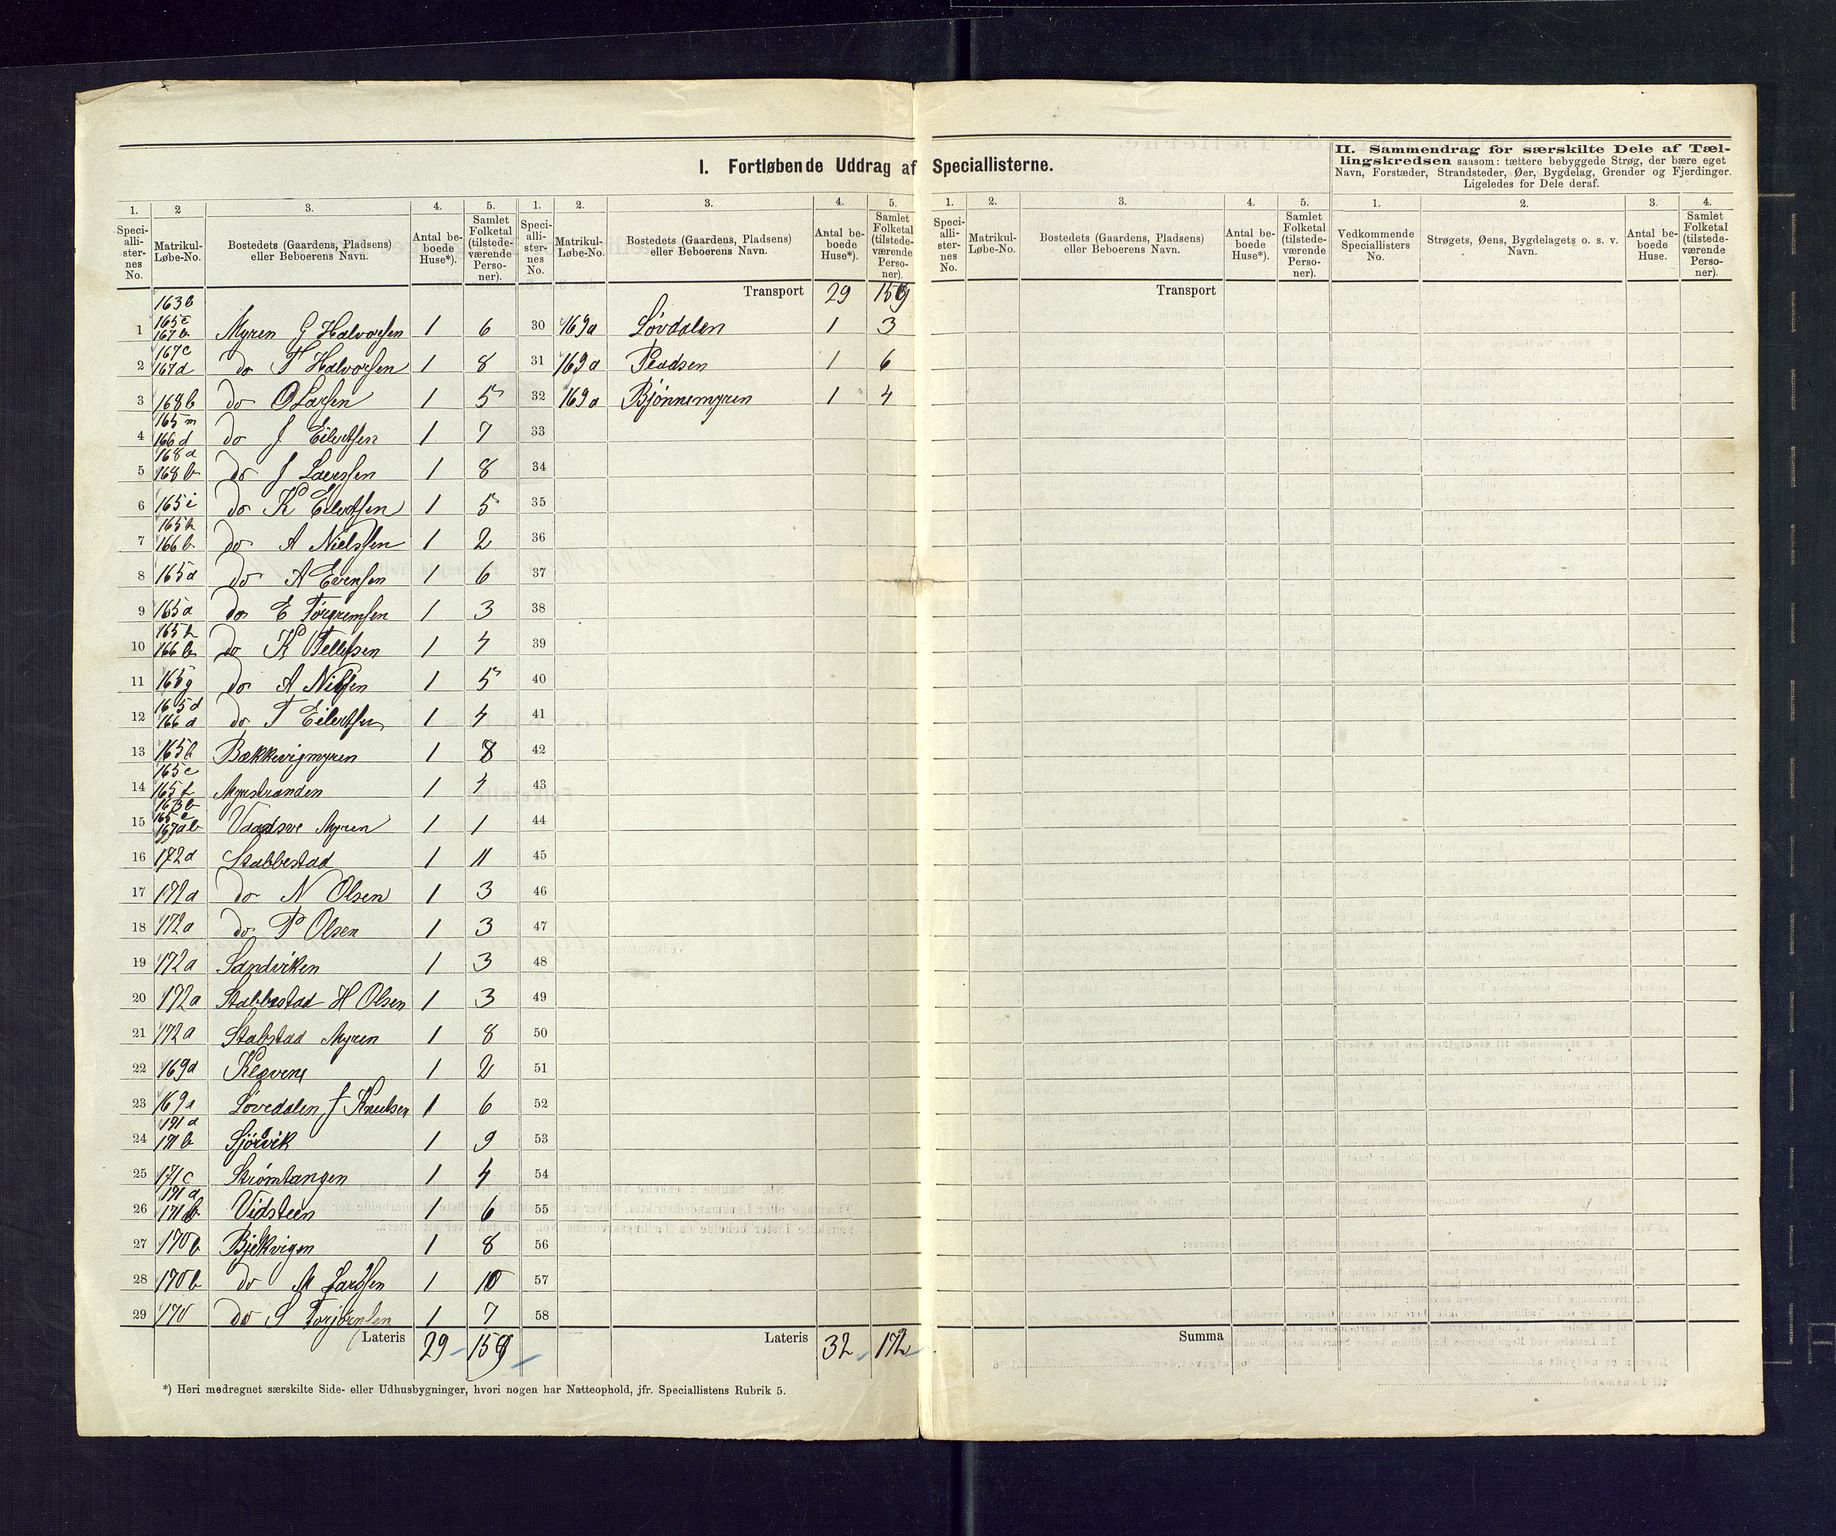 I. Fortløbende Uddrag af Speciallisterne.
II. Sammendrag for særskilte Dele af Tæl-
lingskredsen saasom: tættere bebyggede Strøg, der bære eget
Navn, Forstæder, Strandsteder, Øer, Bygdelag, Grender og Fjerdinger.
Ligeledes for Dele deraf.
1. 2 3. 4. 5. 1. 2. 3. 4. 5. 1. 2. 3. 4. 5. 1. 2. 3. 4.
Speci-allister-nes No. Matrikul-Løbe-No. Bostedets (Gaardens, Pladsens) eller Beboerens Navn. Antal be-boede Huse*). Samlet Folketal (tilstede-værende Perso-ner).
Speci-allister-nes No. Matrikul-Løbe-No. Bostedets (Gaardens, Pladsens) eller Beboerens Navn. Antal be-boede Huse*). Samlet Folketal (tilstede-værende Perso-ner).
Speci-allister-nes No. Matrikul-Løbe-No. Bostedets (Gaardens, Pladsens) eller Beboerens Navn. Antal be-boede Huse*). Samlet Folketal (tilstede-værende Perso-ner).
Vedkommende Speciallisters No. Strøgets, Øens, Bygdelagets o. s. v. Navn. Antal be-boede Huse. Samlet Folketal (tilstede-værende Perso-ner).
Transport 29 159
Transport
163b
165c
1 167b Myren G Halvorsen 1 6
167c
2 167d do T Halvorsen 1 8
3 168b do O Larsen 1 5
165m
4 166d do J Eilertsen 1 7
168a
5 168b do J Larssen 1 8
6 165i do K Eilertsen 1 5
165h
7 166b do A Nielssen 1 2
8 165d do A Evensen 1 6
9 165a do E Torgremsen 1 3
165h
10 166b do K Tellefsen 1 4
11 165g do A Nilsen 1 5
165d
12 166a do T Eilertsen 1 4
13 165b Bækkevigmyren 1 8
165e
14 165f Myrstranden 1 4
163b
165c
15 167ab Myren 1 1
16 172d Stabbestad 1 11
17 172a do N Olsen 1 3
18 172a do P Olsen 1 3
19 172a Sandviken 1 3
20 172a Stabbestad H Olsen 1 3
21 172a Stabstad Myren 1 8
22 169a Klævene 1 2
23 169a Løvedalen J Knudsen 1 6
171a
24 171b Sjørvik 1 9
25 171c Strømtangen 1 4
171a
26 171b Vidsteen 1 6
27 170b Bjelkvigen 1 8
28 170b do M Larssen 1 10
29 170 do S Torjørnsen 1 7
Lateris 29 159
30 169a Løvdalen 1 3
31 169a Pladsen 1 6
32 169a Bjønnemyren 1 4
33
34
35
36
37
38
39
40
41
42
43
44
45
46
47
48
49
50
51
52
53
54
55
56
57
58
Lateris 32 172
Summa
*) Heri medregnet særskilte Side- eller Udhusbygninger, hvori nogen har Natteophold, jfr. Speciallistens Rubrik 5.